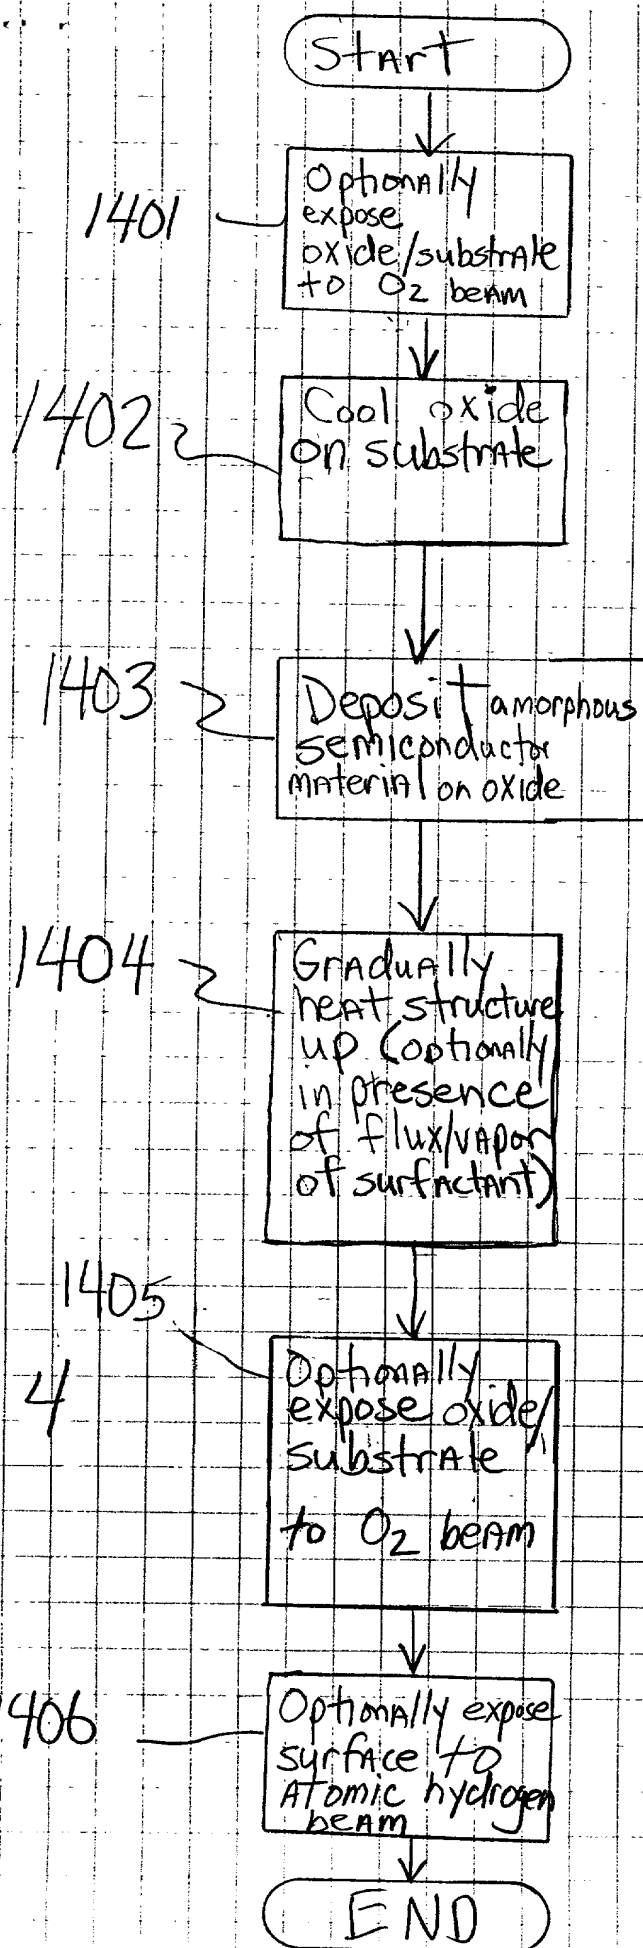 Start
1401
Optionally
expose
oxide/substrate
to O2 beam
1402
Cool oxide
on substrate
1403
Deposit amorphous
semiconductor
material on oxide
1404
Gradually
heat structure
up (optionally
in presence
of flux/vapor
of surfactant)
1405
4
Optionally
expose oxide/
substrate
to O2 beam
406
Optionally expose
surface to
Atomic hydrogen
beam
END